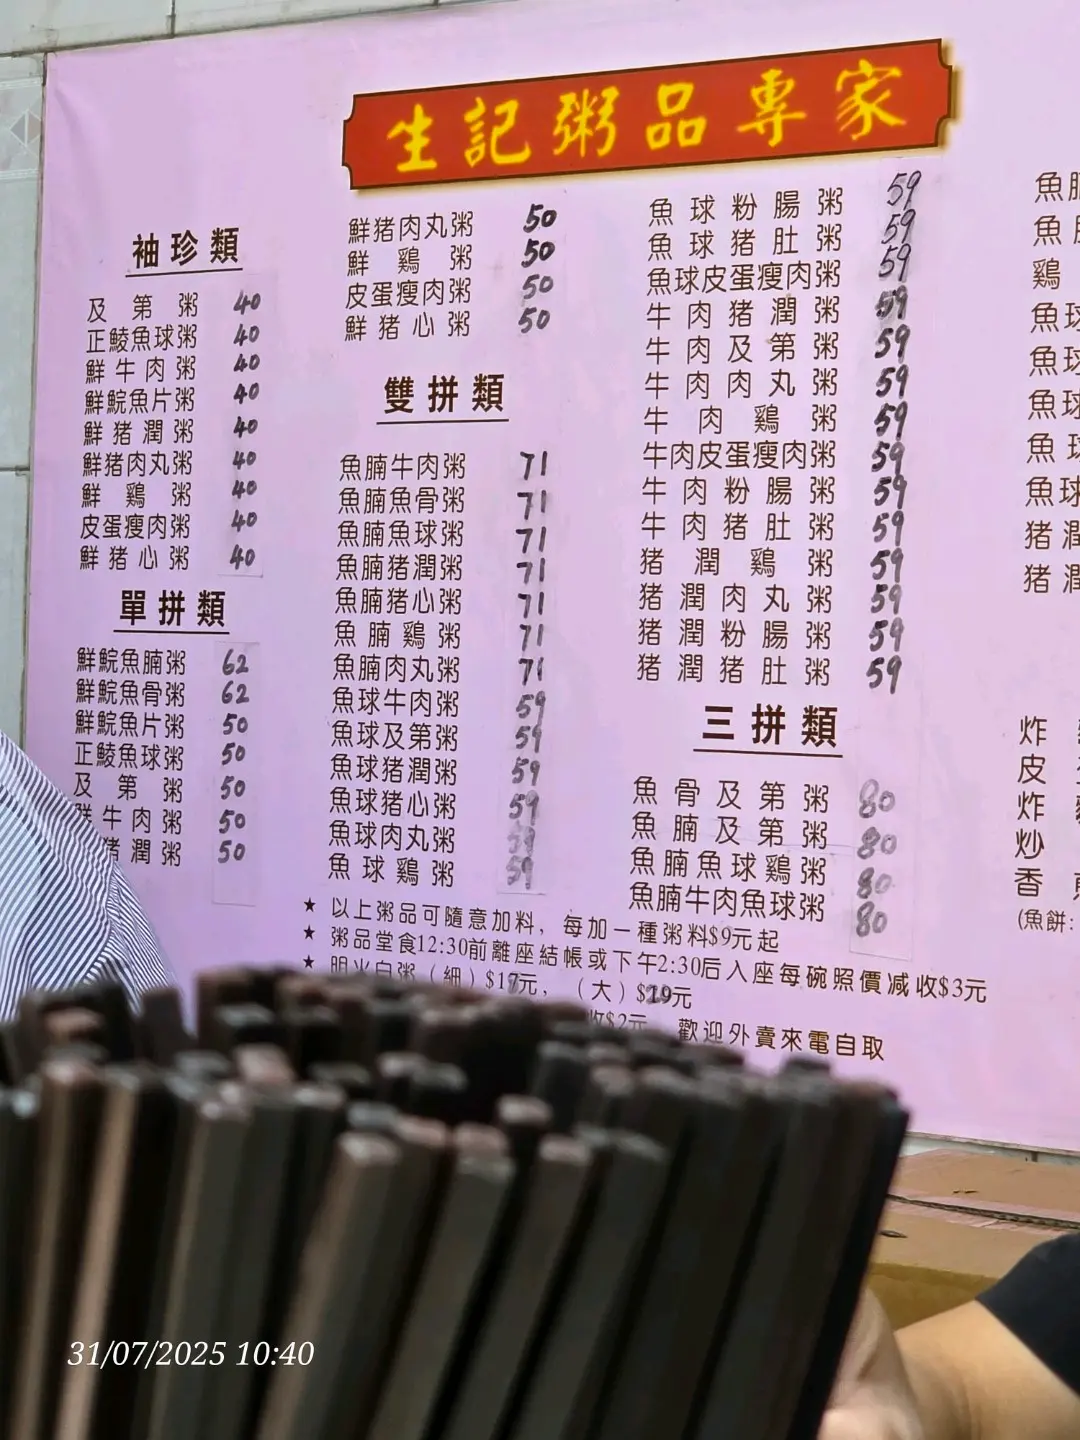 生記粥品專家
袖珍類
及第粥 40
正鯪魚球粥 40
鮮牛肉粥 40
鮮鯇魚片粥 40
鮮猪潤粥 40
鮮猪肉丸粥 40
鮮鷄粥 40
皮蛋瘦肉粥 40
鮮猪心粥 40
單拼類
鮮鯇魚腩粥 62
鮮鯇魚骨粥 62
鮮鯇魚片粥 50
正鯪魚球粥 50
及第粥 50
牛肉粥 50
潤粥 50
鮮猪肉丸粥 50
鮮鷄粥 50
皮蛋瘦肉粥 50
鮮猪心粥 50
雙拼類
魚腩牛肉粥 71
魚腩魚骨粥 71
魚腩魚球粥 71
魚腩猪潤粥 71
魚腩猪心粥 71
魚腩鷄粥 71
魚腩肉丸粥 71
魚球牛肉粥 59
魚球及第粥 59
魚球猪潤粥 59
魚球猪心粥 59
魚球肉丸粥 59
魚球鷄粥 59
魚球粉腸粥 59
魚球猪肚粥 59
魚球皮蛋瘦肉粥 59
牛肉猪潤粥 59
牛肉及第粥 59
牛肉肉丸粥 59
牛肉鷄粥 59
牛肉皮蛋瘦肉粥 59
牛肉粉腸粥 59
牛肉猪肚粥 59
猪潤鷄粥 59
猪潤肉丸粥 59
猪潤粉腸粥 59
猪潤猪肚粥 59
三拼類
魚骨及第粥 80
魚腩及第粥 80
魚腩魚球鷄粥 80
魚腩牛肉魚球粥 80
★ 以上粥品可隨意加料，每加一種粥料$9元起
★ 粥品堂食12:30前離座結帳或下午2:30后入座每碗照價減收$3元
★ 明火白粥（細）$17元，（大）$19元
收$2元 歡迎外賣來電自取
魚
魚
鷄
魚球
魚球
魚球
魚球
魚球
猪潤
猪潤
炸
皮
炸
炒
香
(魚餅:
31/07/2025 10:40